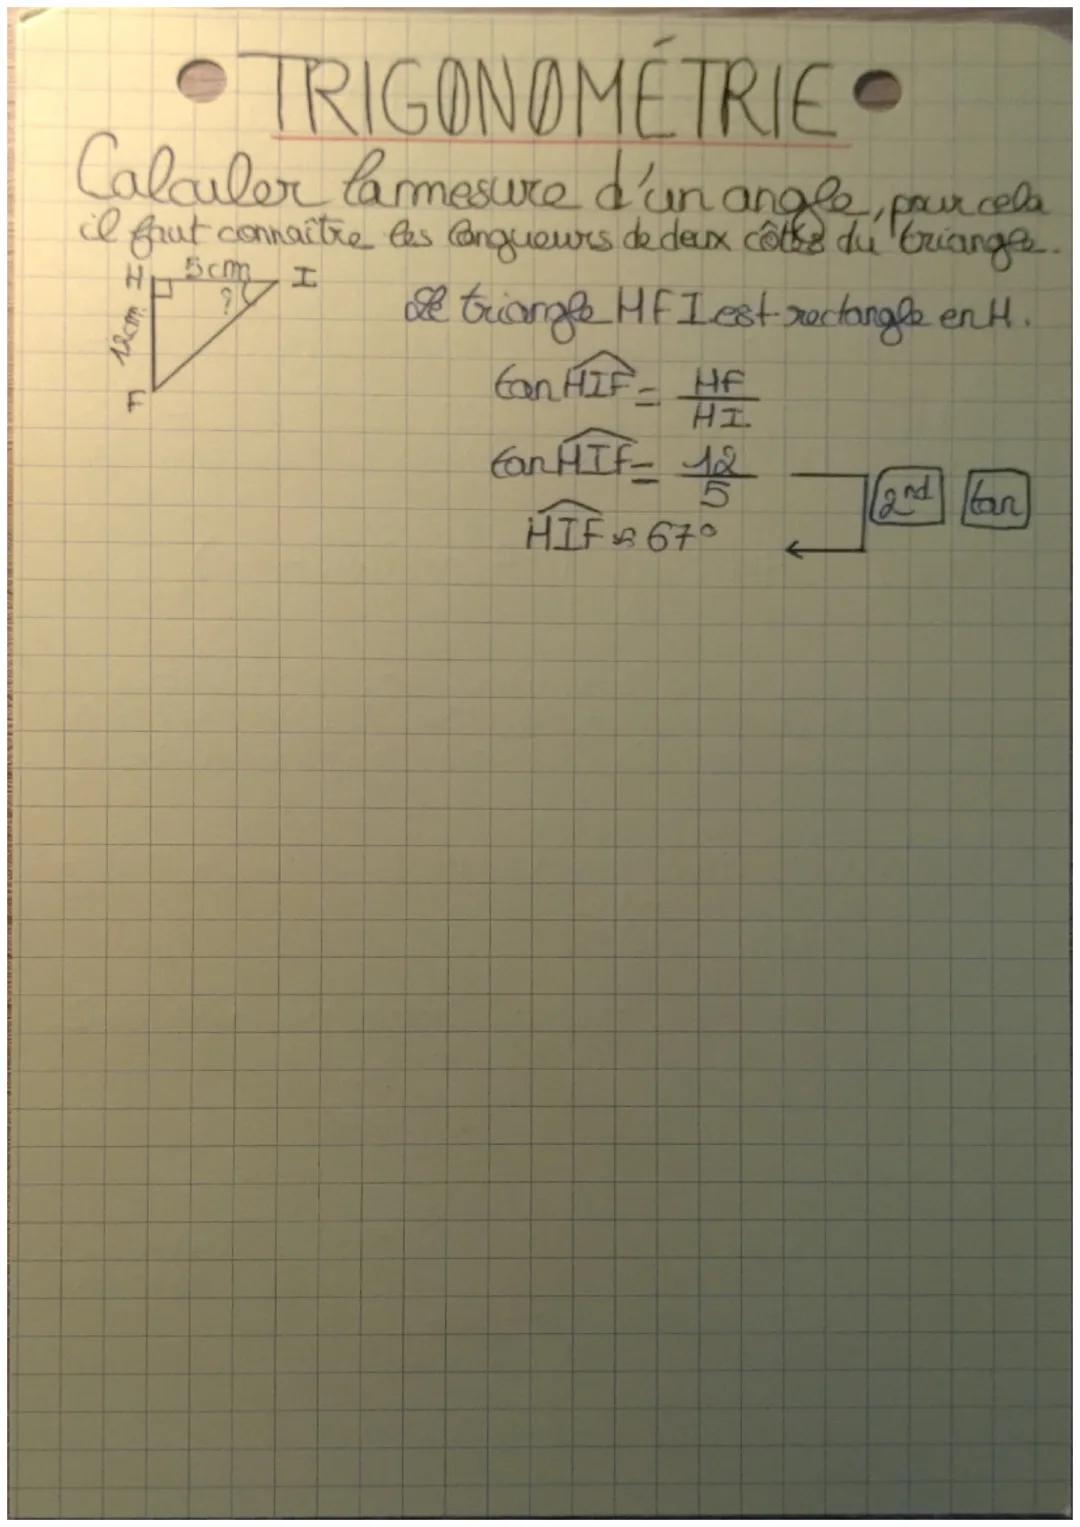 • TRIGONOMÉTRIE •
Calculer la mesure d'un angle, pour cela
il faut connaître les longueurs de deux côtés du triangle.
H 5cm I
?
12cm
F
Le triangle HFI est rectangle en H.
tan HIF = HF
HI
tan HIF = 12
5
2nd tan
HIF ≈ 67°